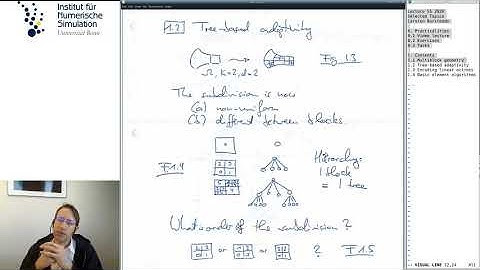 Institut für
Numerische
Simulation
Universität Bonn
1.2 Tree-based adaptivity
Ω, K=2, d=2
Fig 1.3
The subdivision is now
(a) non-uniform
(b) different between blocks
0
0
2 3
0 1
F 1.4
Hierarchy:
1 block
= 1 tree
What order of the subdivision?
or or ?
F 1.5
Lecture SS 2020
Selected Topics
Carsten Burstedde
0. Practicalities
0.1 Video lecture
0.2 Exercises
0.3 Tasks
1. Contents
1.1 Multiblock geometry
1.2 Tree-based adaptivity
1.3 Encoding linear octrees
1.4 Basic element algorithms
-- VISUAL LINE --